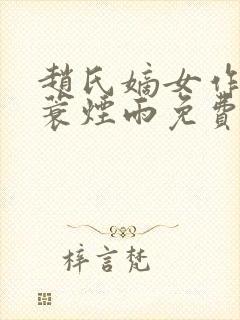 趙氏嫡女作
蓑煙雨免費
梓言梵